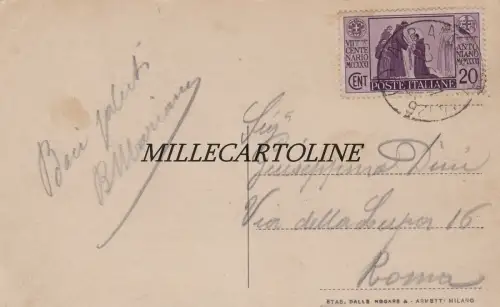 VII CENTENARIO MCCXXXI
ANTONIANO MCMXXXI
POSTE ITALIANE
CENT 20
Baci saluti
MILLECARTOLINE
Giuseppina Dini
Via della Lupa 16
Roma
STAB. DALLE NOGARE & ARMETTI MILANO